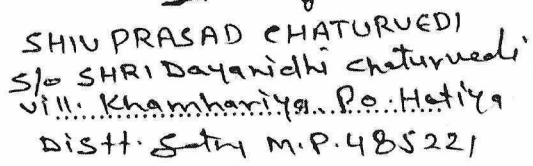 SHIV PRASAD CHATURVEDI
S/o SHRI Dayanidhi Chaturvedi
vill. Khamhariya. Po. Hatiya
Distt. Satna M.P. 485221